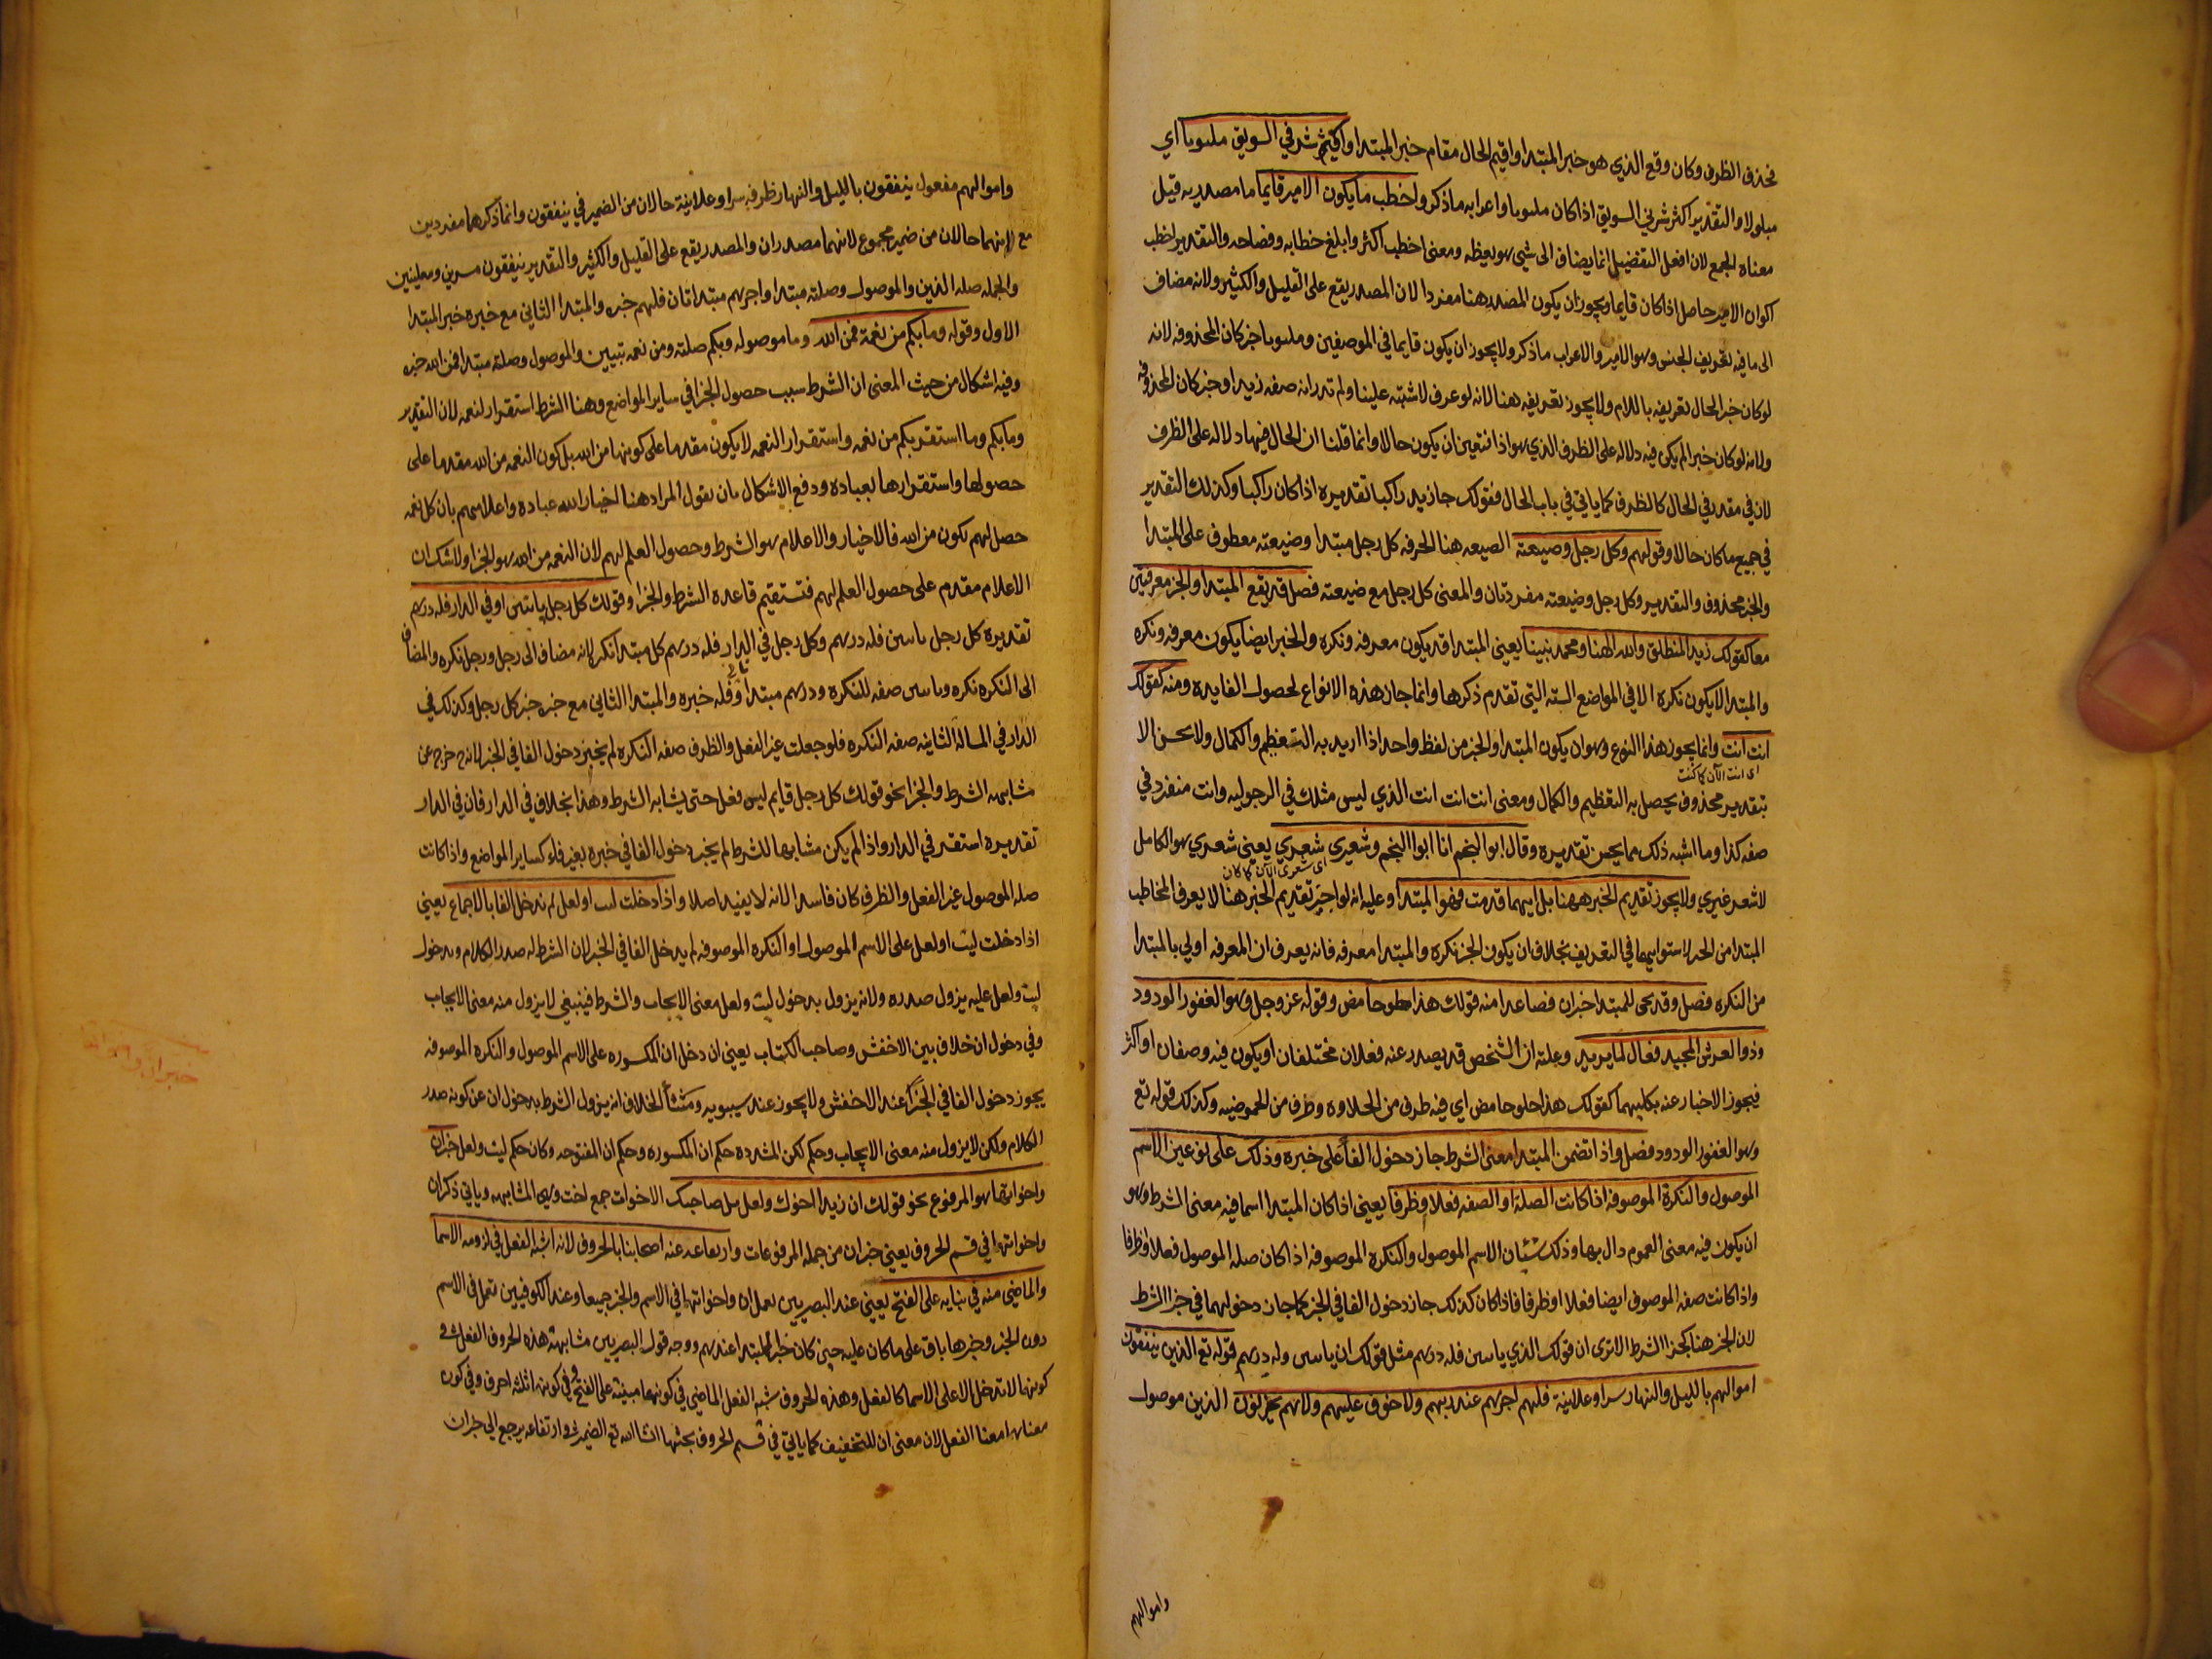 فحذف الظرف وكان وقع الذي هو خبر المبتدا واقيم الحال مقام خبر المبتدا واكثر شربي السويق ملتوتا اي
مبلولا والتقدير اكثر شربي السويق اذا كان ملتوتا واعرابه ما ذكر واخطب ما يكون الامير قايما ما مصدريه قيل
معناه الجمع لان افعل التفضيل انما يضاف الى شيي هو بعضه ومعنى اخطب اكثر وابلغ خطابه وفصاحه والتقدير اخطب
اكوان الامير حاصل اذا كان قايما ويجوز ان يكون المصدر هنا مفردا لان المصدر يقع على القليل والكثير ولانه مضاف
الى ما فيه تعريف الجنس وهو الامير والاعراب ما ذكر ولا يجوز ان يكون قايما في الموضعين وملتوتا خبر كان المحذوفه لانه
لو كان خبرا لحال تعريفه باللام ولا يجوز تعريفه هنا لانه لو عرف لاشتبه علينا ولم ندر انه صفه زيدا وخبر كان المحذوفه
ولانه لو كان خبرا لم يكن فيه دلاله على الظرف الذي هو اذا فتعين ان يكون حالا وانما قلنا ان الحال فيها دلاله على الظرف
لان في مقدر في الحال كالظرف كما ياتي في باب الحال فقولك جا زيد راكبا تقديره اذا كان راكبا وكذلك التقدير
في جميع ما كان حالا وقولهم وكل رجل وضيعته الضيعه هنا الحرفه كل رجل مبتدا وضيعته معطوف على المبتدا
والخبر محذوف والتقدير وكل رجل وضيعته مقرونان والمعنى كل رجل مع ضيعته فصل قد يقع المبتدا والخبر معرفتين
معا كقولك زيد المنطلق والله الهنا ومحمد نبينا يعني المبتدا قد يكون معرفه ونكره والخبر ايضا يكون معرفه ونكره
والمبتدا لا يكون نكره الا في المواضع السته التي تقدم ذكرها وانما جاز هذه الانواع لحصول الفايده ومنه كقولك
انت انت وانما يجوز هذا النوع وهو ان يكون المبتدا والخبر من لفظ واحد اذا اريد به التعظيم والكمال ولا يحسن الا
اي انت الآن كما كنت
بتقدير محذوف يحصل به التعظيم والكمال ومعنى انت انت انت الذي ليس مثلك في الرجوليه وانت منفرد في
صفه كذا وما اشبه ذلك مما يحسن تقديره وقال ابو النجم انا ابو النجم وشعري شعري يعني شعري هو الكامل
اي شعري الآن كما كان
لا شعر غيري ولا يجوز تقديم الخبر ههنا بل ايهما قدمت فهو المبتدا وعليه انه لو اجيز تقديم الخبر هنا لا يعرف المخاطب
المبتدا من الخبر لاستوايهما في التعريف بخلاف ان يكون الخبر نكره والمبتدا معرفه فانه يعرف ان المعرفه اولى بالمبتدا
من النكره فصل وقد يجي للمبتدا خبران فصاعدا منه قولك هذا حلو حامض وقوله عز وجل وهو الغفور الودود
وذو العرش المجيد فعال لما يريد وعلته ان الشخص قد يصدر عنه فعلان مختلفان او يكون فيه وصفان او اكثر
فيجوز الاخبار عنه بكليهما كقولك هذا حلو حامض اي فيه طرف من الحلاوه وطرف من الحموضه وكذلك قوله تع
وهو الغفور الودود فصل واذا تضمن المبتدا معنى الشرط جاز دخول الفا على خبره وذلك على نوعين الاسم
الموصول والنكرة الموصوفه اذا كانت الصلة او الصفه فعلا او ظرفا يعني اذا كان المبتدا اسما فيه معنى الشرط وهو
ان يكون فيه معنى العموم دال بها وذلك شيئان الاسم الموصول والنكره الموصوفه اذا كان صله الموصول فعلا او ظرفا
واذا كانت صفه الموصوف ايضا فعلا او ظرفا فاذا كان كذلك جاز دخول الفا في الخبر كما جاز دخولهما في جزا الشرط
لان الخبر هنا كجزا الشرط الا ترى ان قولك الذي ياتيني فله درهم مثل قولك ان ياتني وله درهم قوله تع الذين ينفقون
اموالهم بالليل والنهار سرا وعلانية فلهم اجرهم عند ربهم ولا خوف عليهم ولا هم يحزنون الذين موصول
واموالهم
واموالهم مفعول ينفقون بالليل والنهار ظرفه سرا وعلانية حالان من الضمير في ينفقون وانما ذكرهما مفردين
مع انهما حالان من ضمير مجموع لانهما مصدران والمصدر يقع على القليل والكثير والتقدير ينفقون مسرين ومعلنين
والجمله صله الذين والموصول وصلته مبتدا واجرهم مبتدا ثان فلهم خبره والمبتدا الثاني مع خبره خبر المبتدا
الاول وقوله وما بكم من نعمة فمن الله وما موصوله وبكم صلته ومن نعمه تبيين والموصول وصلته مبتدا فمن الله خبره
وفيه اشكال من حيث المعنى ان الشرط سبب حصول الجزا في ساير المواضع وهنا الشرط استقرار نعمه لان التقدير
وما بكم وما استقر بكم من نعمه واستقرار النعمه لا يكون مقدما على كونها من الله بل كون النعمه من الله مقدما على
حصولها واستقرارها لعباده ودفع الاشكال بان نقول المراد هنا اخبار الله عباده واعلامهم بان كل نعمه
حصل لهم تكون من الله فالاخبار والاعلام هو الشرط وحصول العلم لهم لان النعمه من الله هو الجزا ولا شك ان
الاعلام مقدم على حصول العلم لهم فتستقيم قاعده الشرط والجزا وقولك كل رجل ياتيني او في الدار فله درهم
تقديره كل رجل ياتيني فله درهم وكل رجل في الدار فله درهم كل مبتدا نكره لانه مضاف الى رجل ورجل نكره والمضاف
الى النكره نكره وياتيني صفه للنكره ودرهم مبتدا ثان وفله خبره والمبتدا الثاني مع خبره خبر كل رجل وكذلك في
الدار في المساله الثانيه صفه النكره فلو جعلت غير الفعل والظرف صفه النكره لم يجز دخول الفا في الخبر لانه خرج عن
مشابهه الشرط والجزا نحو قولك كل رجل قايم ليس فعل حتى يشابه الشرط وهذا بخلاف في الدار فان في الدار
تقديره استقر في الدار واذا لم يكن مشابها للشرط لم يجز دخول الفا في خبره بغير فله كساير المواضع واذا كانت
صله الموصول غير الفعل والظرف كان فاسدا لانه لا يفيد اصلا واذا دخلت ليت او لعل لم تدخل الفا بالاجماع يعني
اذا دخلت ليت او لعل على الاسم الموصول او النكره الموصوفه لم يدخل الفا في الخبر لان الشرط له صدر الكلام وبدخول
ليت ولعل عليه يزول صدره ولانه يزول بدخول ليت ولعل معنى الايجاب والشرط فينبغي لا يزول منه معنى الايجاب
وفي دخول ان خلاف بين الاخفش وصاحب الكتاب يعني ان دخل ان المكسوره على الاسم الموصول والنكره الموصوفه
يجوز دخول الفا في الجزا عند الاخفش ولا يجوز عند سيبويه ومنشأ الخلاف انه يزول الشرط بدخول ان عن كونه صدر
الكلام ولكن لا يزول منه معنى الايجاب وحكم لكن المشدده حكم ان المكسوره وحكم ان المفتوحه وكان حكم ليت ولعل خبر ان
واخواتها هو المرفوع نحو قولك ان زيدا اخوك ولعل بكرا صاحبك الاخوات جمع اخت وهي المشابهه وياتي ذكر ان
واخواتها في قسم الحروف يعني خبر ان من جمله المرفوعات وارتفاعه عند اصحابنا بالحروف لانه اشبه الفعل في لزومه الاسما
والماضي منه في بنايه على الفتح يعني عند البصريين يعمل ان واخواتها في الاسم والخبر جميعا وعند الكوفيين تعمل في الاسم
دون الخبر وخبرها باق على ما كان عليه حين كان خبر المبتدا عندهم ووجه قول البصريين مشابهة هذه الحروف الفعل في
كونها لا تدخل الا على الاسما كالفعل وهذه الحروف شبه الفعل الماضي في كونها مبنية على الفتح وفي كونه ثلثه احرف وفي كون
معناها معنا الفعل لان معنى ان للتخفيف كما ياتي في قسم الحروف بحثها ان شا الله تع الضمير في وارتفاعه يرجع الى خبر ان
خبر ان واخواتها